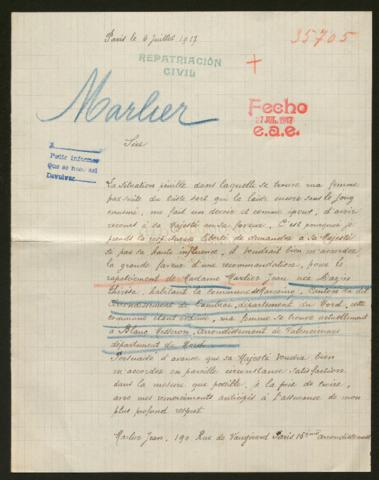 Paris le 6 Juillet 1917
35705
REPATRIACIÓN
CIVIL
Marlier
Fecho
27 JUL. 1917
e.a.e.
Sire
A
Pedir informes
Que se hace así
Devolver
La situation pénible dans laquelle se trouve ma femme
par suite du triste sort qui la laisse encore sous le joug
ennemi, me fait un devoir et comme époux, d'avoir
recours à Sa Majesté en sa faveur. C'est pourquoi je
prends la liberté de demander à Sa Majesté
de sa haute influence, et voudrait bien m'accorder
la grande faveur d'une recommandation, pour le
rapatriement de Madame Marlier Jean, née
Thérèse, habitant la commune de
arrondissement de Cambrai, département du Nord, cette
commune étant évacuée, ma femme se trouve actuellement
à Blanc Misseron, arrondissement de Valenciennes
département du Nord.
Persuadé d'avance que Sa Majesté voudra bien
m'accorder en pareille circonstance satisfaction
dans la mesure que possible, je la prie de croire,
avec mes remerciements anticipés à l'assurance de mon
plus profond respect.
Marlier Jean, 190 Rue de Vaugirard Paris 15ème arrondissement